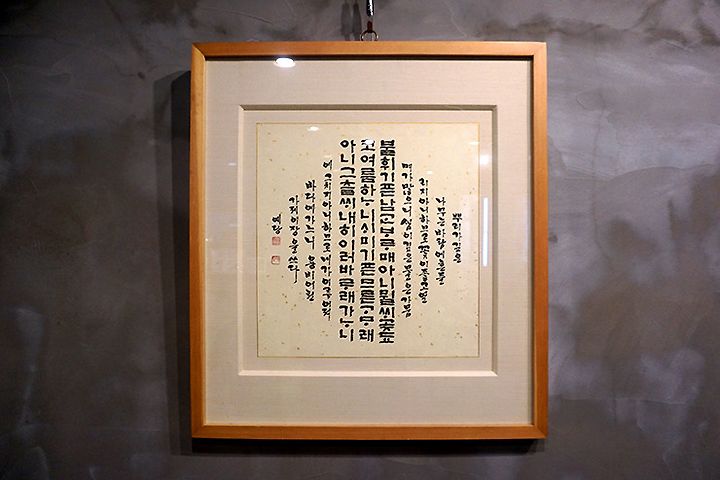 뿌리가 깊은
나무는 바람에 흔들
리지 아니하므로 꽃이 좋고 열
매가 많으니 샘이 깊은 물은 가뭄
불휘기픈남ᄀᆞᆫᄇᆞᄅᆞ매아니뮐ᄊᆡ곶됴
코여름하ᄂᆞ니ᄉᆡ미기픈므른ᄀᆞᄆᆞ래
아니그츨ᄊᆡ내히이러바ᄅᆞ래가ᄂᆞ니
에 그치지 아니하므로 내가 이루어져
바다에 가느니 용비어천
가 제이장을 쓰다